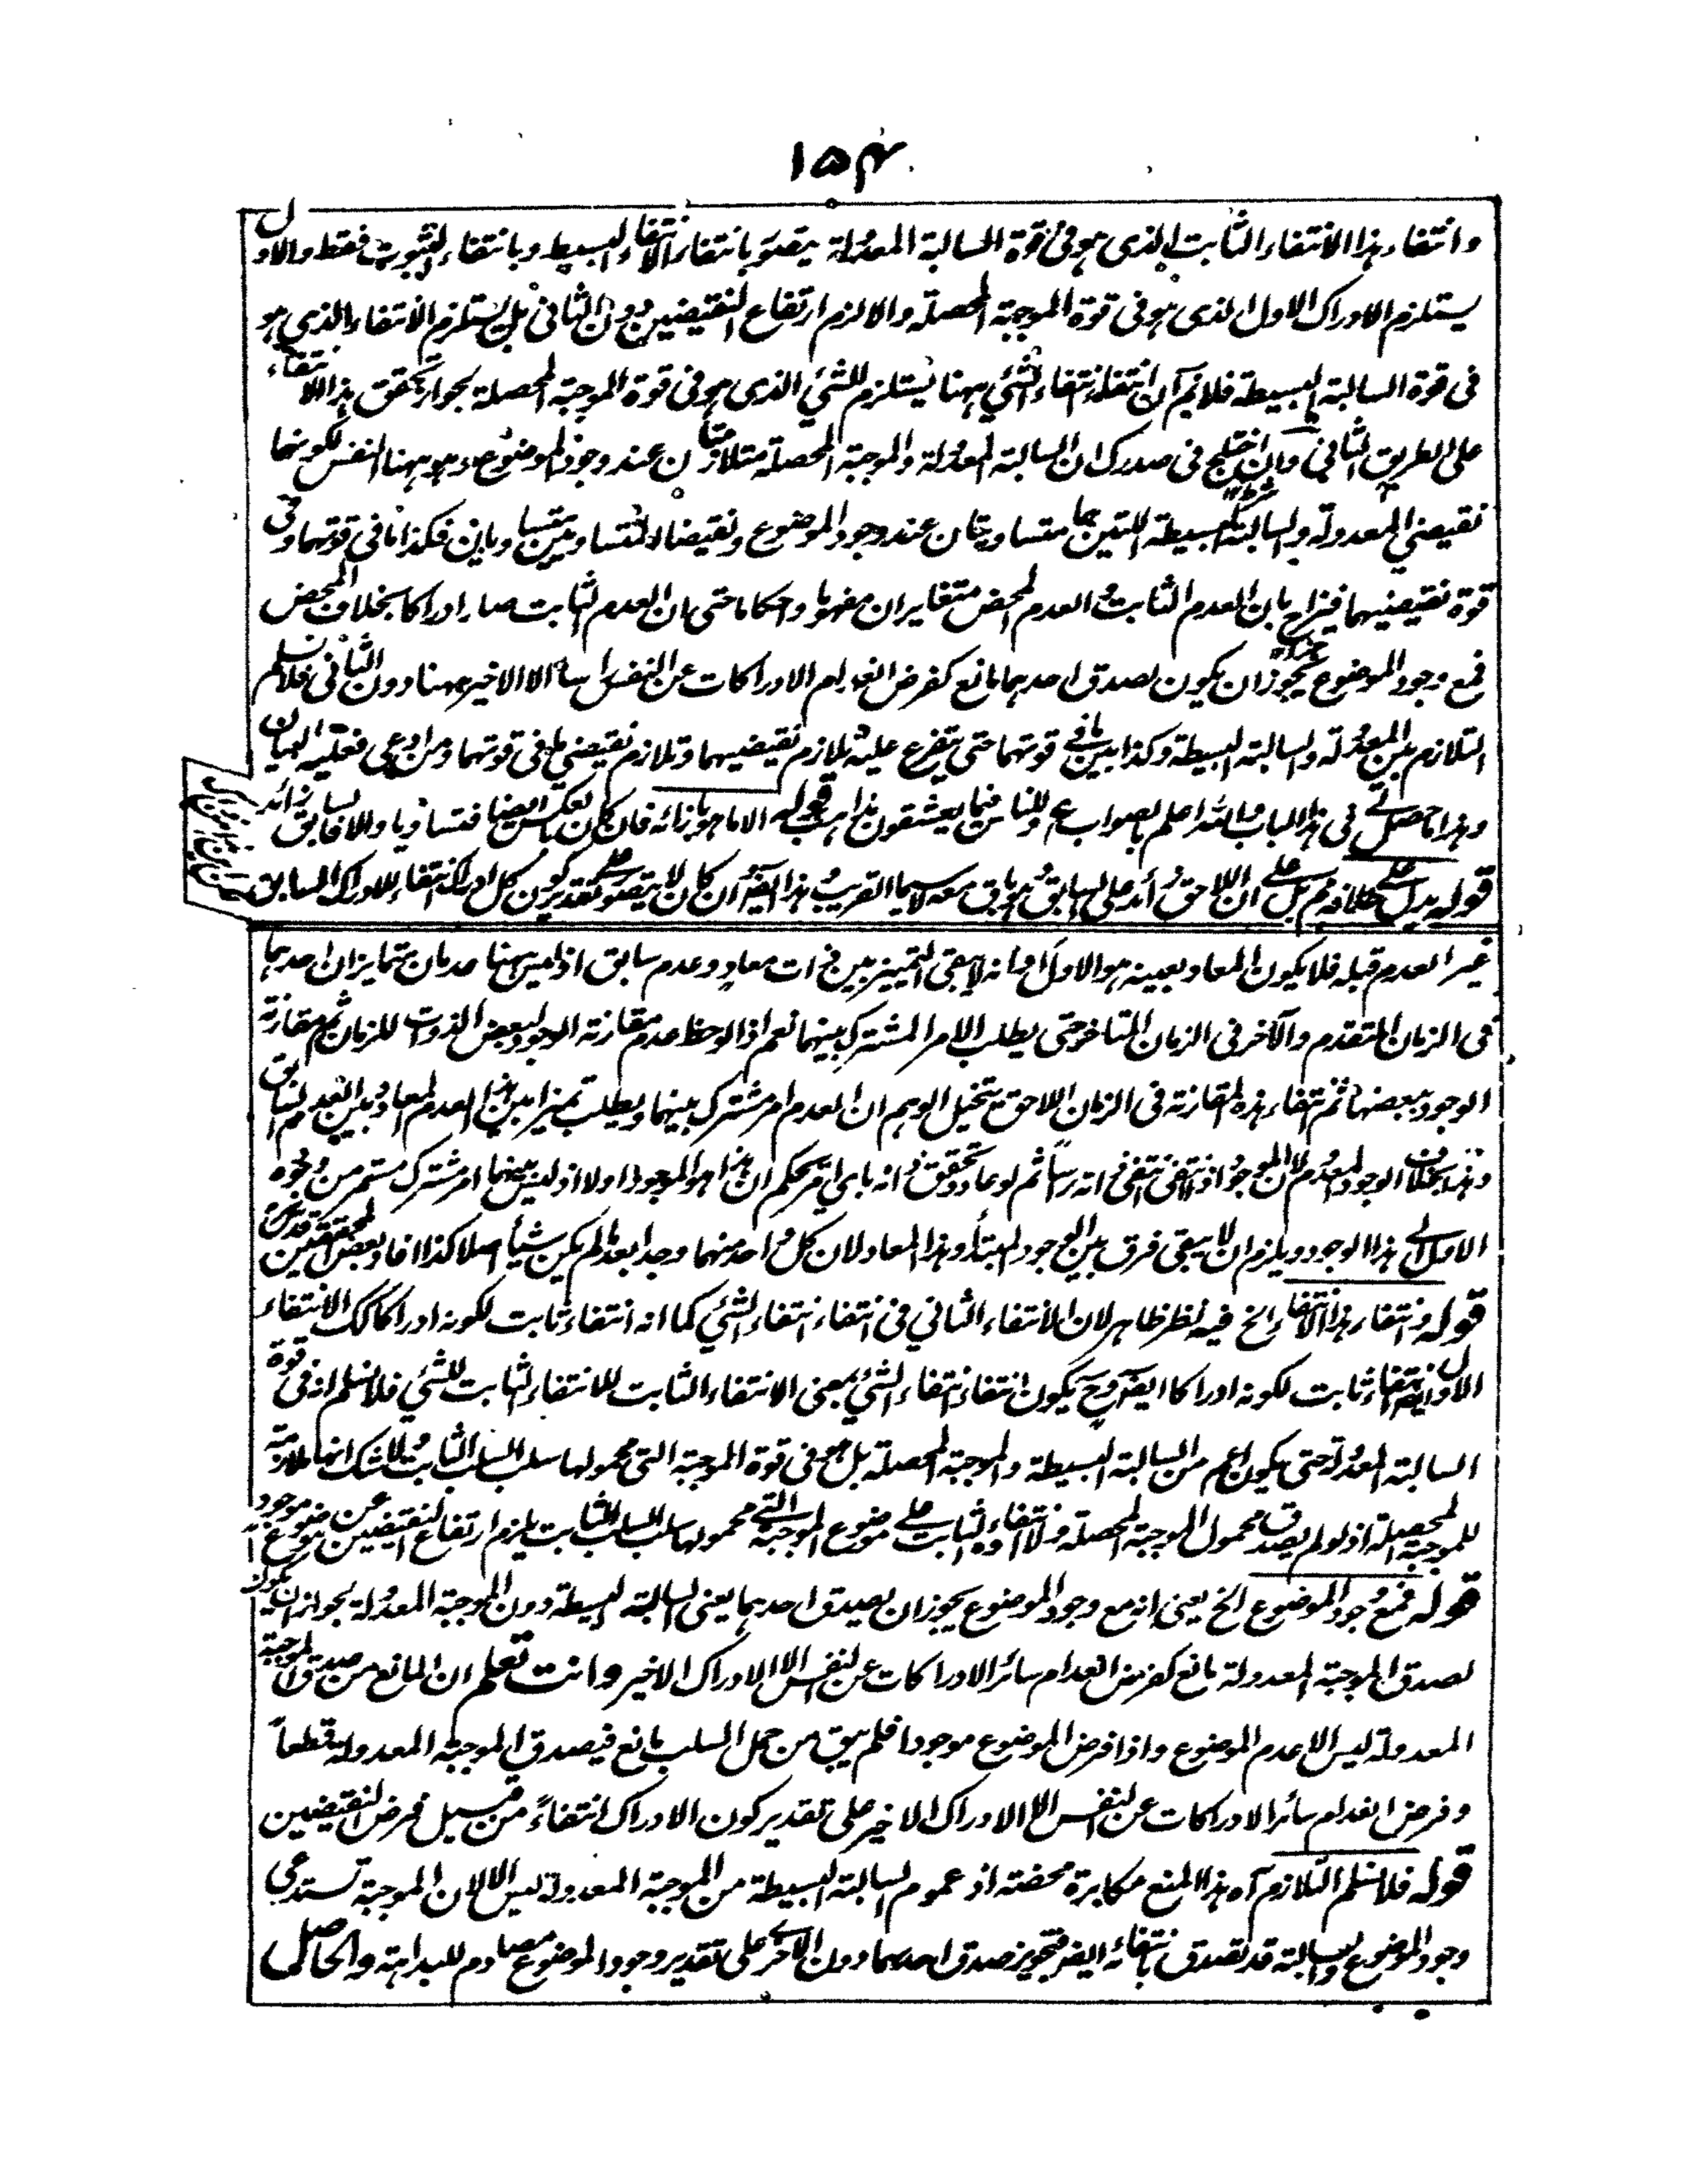 ١٥٤
وانتفاء هذا الانتفاء الثابت الذى هو فى قوة السالبة المعدولة يتصور بانتفاء الانتفاء البسيط وبانتفاء الثبوت فقط والاول
يستلزم الادراك الاول الذى هو فى قوة الموجبة المحصلة والا لزم ارتفاع النقيضين دون الثانى بل يستلزم الانتفاء الذى هو
فى قوة السالبة البسيطة فلا نم ان انتفاء انتفاء الشئ ههنا يستلزم للشئ الذى هو فى قوة الموجبة المحصلة بجواز تحقق هذا الانتفاء
على الطريق الثانى وان اختلج فى صدرك ان السالبة المعدولة والموجبة المحصلة متلازمتان عند وجود الموضوع وهو ههنا النفس لكونهما
نقيضى المعدولة والسالبة البسيطة اللتين هما متساويتان عند وجود الموضوع ونقيضا المتساويين متساويان فكذا ما فى قوتهما وفى
قوة نقيضيهما فيزاح بان العدم الثابت والعدم المحض متغايران مفهوما واحكاما حتى ان العدم الثابت صار ادراكا بخلاف المحض
فمع وجود الموضوع يجوز ان يكون لصدق احدهما مانع كفرض انعدام الادراكات عن النفس الا الاخير ههنا دون الثانى فلا نسلم
التلازم بين المعدولة والسالبة البسيطة وكذا بين ما فى قوتهما حتى يتفرع عليه تلازم نقيضيهما وتلازم نقيضى ما فى قوتهما ومن ادعى فعليه البيان
وهذا ما حصل لى فى هذا الباب والله اعلم بالصواب ع وللناس فيما يعشقون مذاهب قوله الا ما هو بازائه فان كان بالعكس ايضا فتساويا والا فالسابق زائد
قوله يدل على خلافه م بل على ان اللاحق زائد على السابق معه لا سيما القريب هذا ايضا ان كان لا يتصور على تقدير كون كل ادراك انتفاء للادراك السابق
غير العدم قبله فلا يكون المعاد بعينه هو الاول او انه لا يبقى التمييز بين ذات معاد وعدم سابق اذ ليس ههنا عدمان يتمايزان احدهما
فى الزمان المتقدم والآخر فى الزمان المتاخر حتى يطلب الامر المشترك بينهما نعم اذا لوحظ عدم مقارنة الوجود لبعض الذوات للزمان ثم مقارنة
الوجود ببعضها ثم انتفاء هذه المقارنة فى الزمان اللاحق يتخيل الوهم ان العدم امر مشترك بينهما ويطلب تميزا بين هذا العدم المعاد وبين العدم السابق
وهذا بخلاف الوجود المعدوم لان الموجود اذا انتفى انتفى ذاته راسا ثم لو عاد وتحقق ذاته باى امر يحكم ان هذا هو الموجود اولا اذ ليس بينهما امر مشترك مستمر من وجوه
الاول الى هذا الوجود ويلزم ان لا يبقى فرق بين الوجود المبتدأ وهذا المعاد لان كل واحد منهما وجد بعد ما لم يكن شيأ اصلا كذا افاد بعض المحققين قدس سره
قوله وانتفاء هذا الانتفاء الخ فيه نظر ظاهر لان الانتفاء الثانى فى انتفاء انتفاء الشئ كما انه انتفاء ثابت لكونه ادراكا كك الانتفاء
الاول ايضا انتفاء ثابت لكونه ادراكا ايضا وح يكون انتفاء انتفاء الشئ بمعنى الانتفاء الثابت للانتفاء الثابت للشئ فلا نسلم انه فى قوة
السالبة المعدولة حتى يكون اعم من السالبة البسيطة والموجبة المحصلة بل هو فى قوة الموجبة التى محمولها سلب السلب الثابت ولا شك انها ملازمة
للموجبة المحصلة اذ لو لم يصدق محمول الموجبة المحصلة ولا انتفاؤه الثابت على موضوع الموجبة التى محمولها سلب السلب الثابت يلزم ارتفاع النقيضين عن موضوع موجود
قوله فمع وجود الموضوع الخ يعنى انه مع وجود الموضوع يجوز ان يصدق احدهما يعنى السالبة البسيطة دون الموجبة المعدولة بجواز ان يكون
لصدق الموجبة المعدولة مانع كفرض انعدام سائر الادراكات عن النفس الا الادراك الاخير وانت تعلم ان المانع من صدق الموجبة
المعدولة ليس الا عدم الموضوع واذا فرض الموضوع موجودا فلم يبق من حمل السلب مانع فيصدق الموجبة المعدولة قطعاً
وفرض انعدام سائر الادراكات عن النفس الا الادراك الاخير على تقدير كون الادراك انتفاءً من قبيل فرض النقيضين
قوله فلا نسلم التلازم آه هذا المنع مكابرة محضة اذ عموم السالبة البسيطة من الموجبة المعدولة ليس الا لان الموجبة تستدعى
وجود الموضوع والسالبة قد تصدق بانتفائه ايضا فتجويز صدق احدهما دون الاخرى على تقدير وجود الموضوع مصادم للبداهة والحاصل